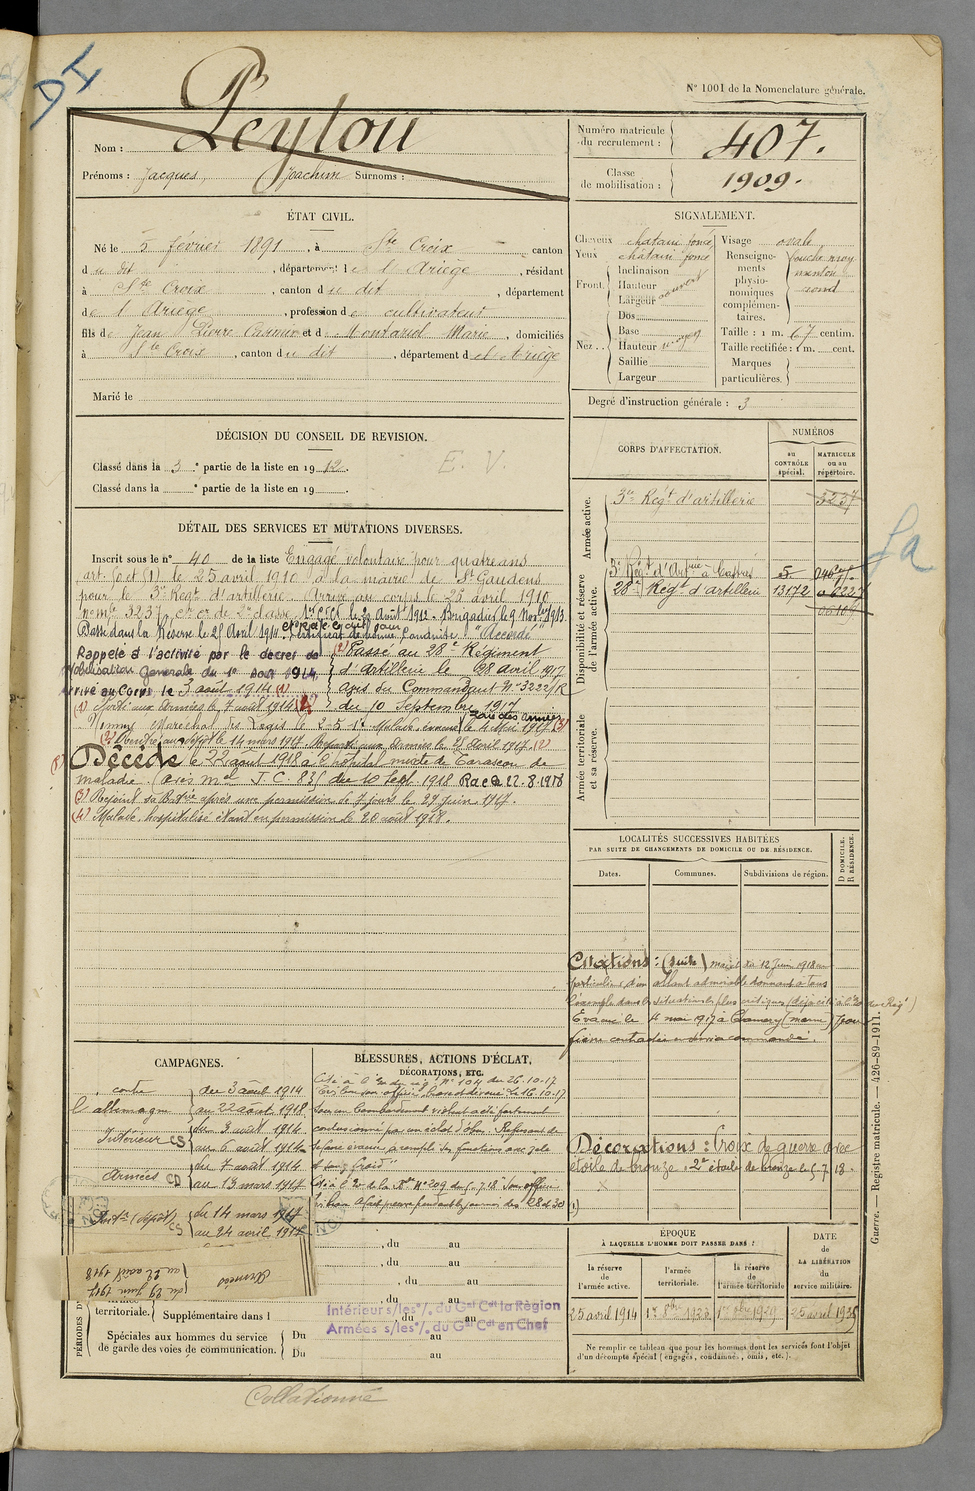 DI
N° 1001 de la Nomenclature générale.
Nom : Peytou
Prénoms : Jacques, Joachim Surnoms :
Numéro matricule du recrutement : 407.
Classe de mobilisation : 1909.
ÉTAT CIVIL.
Né le 5 février 1891, à Ste Croix canton
du dit, département de l'Ariège, résidant
à Ste Croix, canton du dit, département
de l'Ariège, profession de cultivateur
fils de Jean Pierre et de Montariol Marie, domiciliés
à Ste Croix, canton du dit, département de l'Ariège
Marié le
SIGNALEMENT.
Cheveux châtain foncé
Yeux châtain foncé
Front
Inclinaison
Hauteur
Largeur
Nez
Dos
Base
Hauteur moyen
Saillie
Largeur
Visage ovale
Renseignements physionomiques complémentaires.
bouche moy
menton
rond
Taille : 1 m. 67 centim.
Taille rectifiée : 1 m. cent.
Marques particulières.
Degré d'instruction générale : 3
DÉCISION DU CONSEIL DE REVISION.
Classé dans la 3e partie de la liste en 1912.
Classé dans la e partie de la liste en 19 .
E. V.
CORPS D'AFFECTATION.
NUMÉROS
au CONTRÔLE spécial.
MATRICULE ou au répertoire.
Armée active.
3e Régt d'artillerie 3237
Disponibilité et réserve de l'armée active.
3e Régt d'Artie à Castres 5
28e Régt d'artillerie 13172
Armée territoriale et sa réserve.
DÉTAIL DES SERVICES ET MUTATIONS DIVERSES.
Inscrit sous le n° 40 de la liste Engagé volontaire pour quatre ans
le 25 avril 1910 à la mairie de St Gaudens
pour le 3e Régt d'artillerie. Arrivé au corps le 25 avril 1910
3237, et cr de 2e classe. Brigadier le 9 Novbre 1913.
Passé dans la Réserve le 25 Avril 1914. Certificat de bonne conduite "Accordé"
Rappelé à l'activité par le décret de
Mobilisation Générale du 1er Août 1914.
Arrivé au Corps le 3 août 1914 (1)
(2) Passé au 28e Régiment
d'Artillerie le 28 avril 1917
avis du Commandant N° 3222/R
du 10 Septembre 1917
(1) Porté aux Armées le 7 août 1914
Nommé Maréchal des Logis le
Malade, évacué le 4 Mai 1917 (3)
Zone des armées
le 14 mars 1917 Reparti aux Armées le 25 Avril 1917. (2)
Décédé le 22 août 1918 à l'hôpital mixte de Tarascon de
maladie. (avis mel J.C. 83) du 10 Sept. 1918 Rac le 22-8-1918
(3) Rejoint sa Battrie après une permission de 7 jours le 29 juin 1917.
(4) Malade, hospitalisé étant en permission le 20 août 1918.
LOCALITÉS SUCCESSIVES HABITÉES
PAR SUITE DE CHANGEMENTS DE DOMICILE OU DE RÉSIDENCE.
Dates.
Communes.
Subdivisions de région.
D DOMICILE.
R RÉSIDENCE.
Citations : (suite) du 12 Juin 1918
allant admirable donnant à tous
l'exemple dans les situations les plus critiques
Evacué le 4 mai 1917 à Damery (Marne) pour
fièvre contractée en service commandé.
Décorations : Croix de guerre avec
étoile de bronze. 2e étoile de bronze le 5.7.18.
CAMPAGNES.
contre l'allemagne
du 3 août 1914
au 22 août 1918
Intérieur CS
du 3 août 1914
au 6 août 1914
Armées CD
du 7 août 1914
au 13 mars 1917
(dépôt) CS
du 14 mars 1917
au 24 avril 1917
Armées
du 29 juin 1917
au 22 août 1918
BLESSURES, ACTIONS D'ÉCLAT, DÉCORATIONS, ETC.
Cité à l'ordre du rég N° 104 du 26.10.17
Très bon sous officier brave et dévoué. Le 16.10.17
sous un bombardement violent a été fortement
contusionné par un éclat d'obus. Refusant de
se faire évacuer a rempli ses fonctions avec zèle
et sang froid"
N° 209 du 5.7.18
PÉRIODES
territoriale.
Supplémentaire dans l
Spéciales aux hommes du service de garde des voies de communication.
Du au
Du au
, du au
, du au
, du au
, du au
, du au
Intérieur s/les °/. du Gal Cdt la Région
Armées s/les °/. du Gal Cdt en Chef
ÉPOQUE
À LAQUELLE L'HOMME DOIT PASSER DANS :
la réserve de l'armée active.
l'armée territoriale.
la réserve de l'armée territoriale
DATE de LA LIBÉRATION du service militaire.
25 avril 1914
Ne remplir ce tableau que pour les hommes dont les services font l'objet
d'un décompte spécial (engagés, condamné, omis, etc.).
Guerre. — Registre matricule. — 426-89-1911.
Collationné